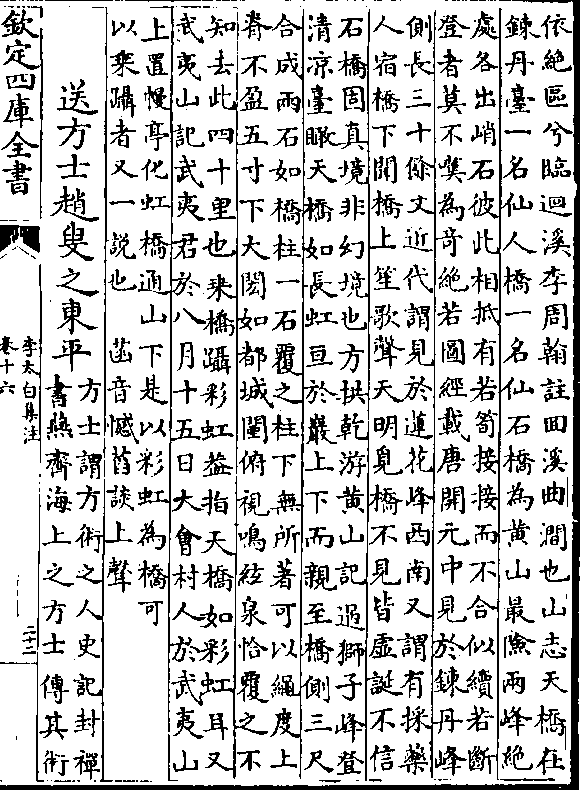 依絶區兮臨迴溪李周翰註回溪曲澗也山志天橋在
鍊丹臺一名仙人橋一名仙石橋為黄山最險兩峰絶
處各出峭石彼此相抵有若筍接接而不合似續若斷
登者莫不嘆為奇絶若圖經載唐開元中見於鍊丹峰
側長三十餘丈近代謂見於蓮花峰西南又謂有採藥
人宿橋下聞橋上笙歌聲天明見橋不見皆虚誕不信
石橋固真境非幻境也方拱乾游黄山記過獅子峰登
清凉臺瞰天橋如長虹亘於巖上下而親至橋側三尺
合成兩石如橋柱一石覆之柱下無所著可以繩度上
脊不盈五寸下大閎如都城闉俯視鳴絃泉恰覆之不
知去此四十里也乗橋躡彩虹葢指天橋如彩虹耳又
武夷山記武夷君於八月十五日大會村人於武夷山
上置幔亭化虹橋通山下是以彩虹為橋可
以乗躡者又一説也 菡音憾萏談上聲
送方士趙叟之東平 方士謂方術之人史記封禪
書燕齊海上之方士傳其術
欽定四庫全書
李太白集注
卷十六
二十二